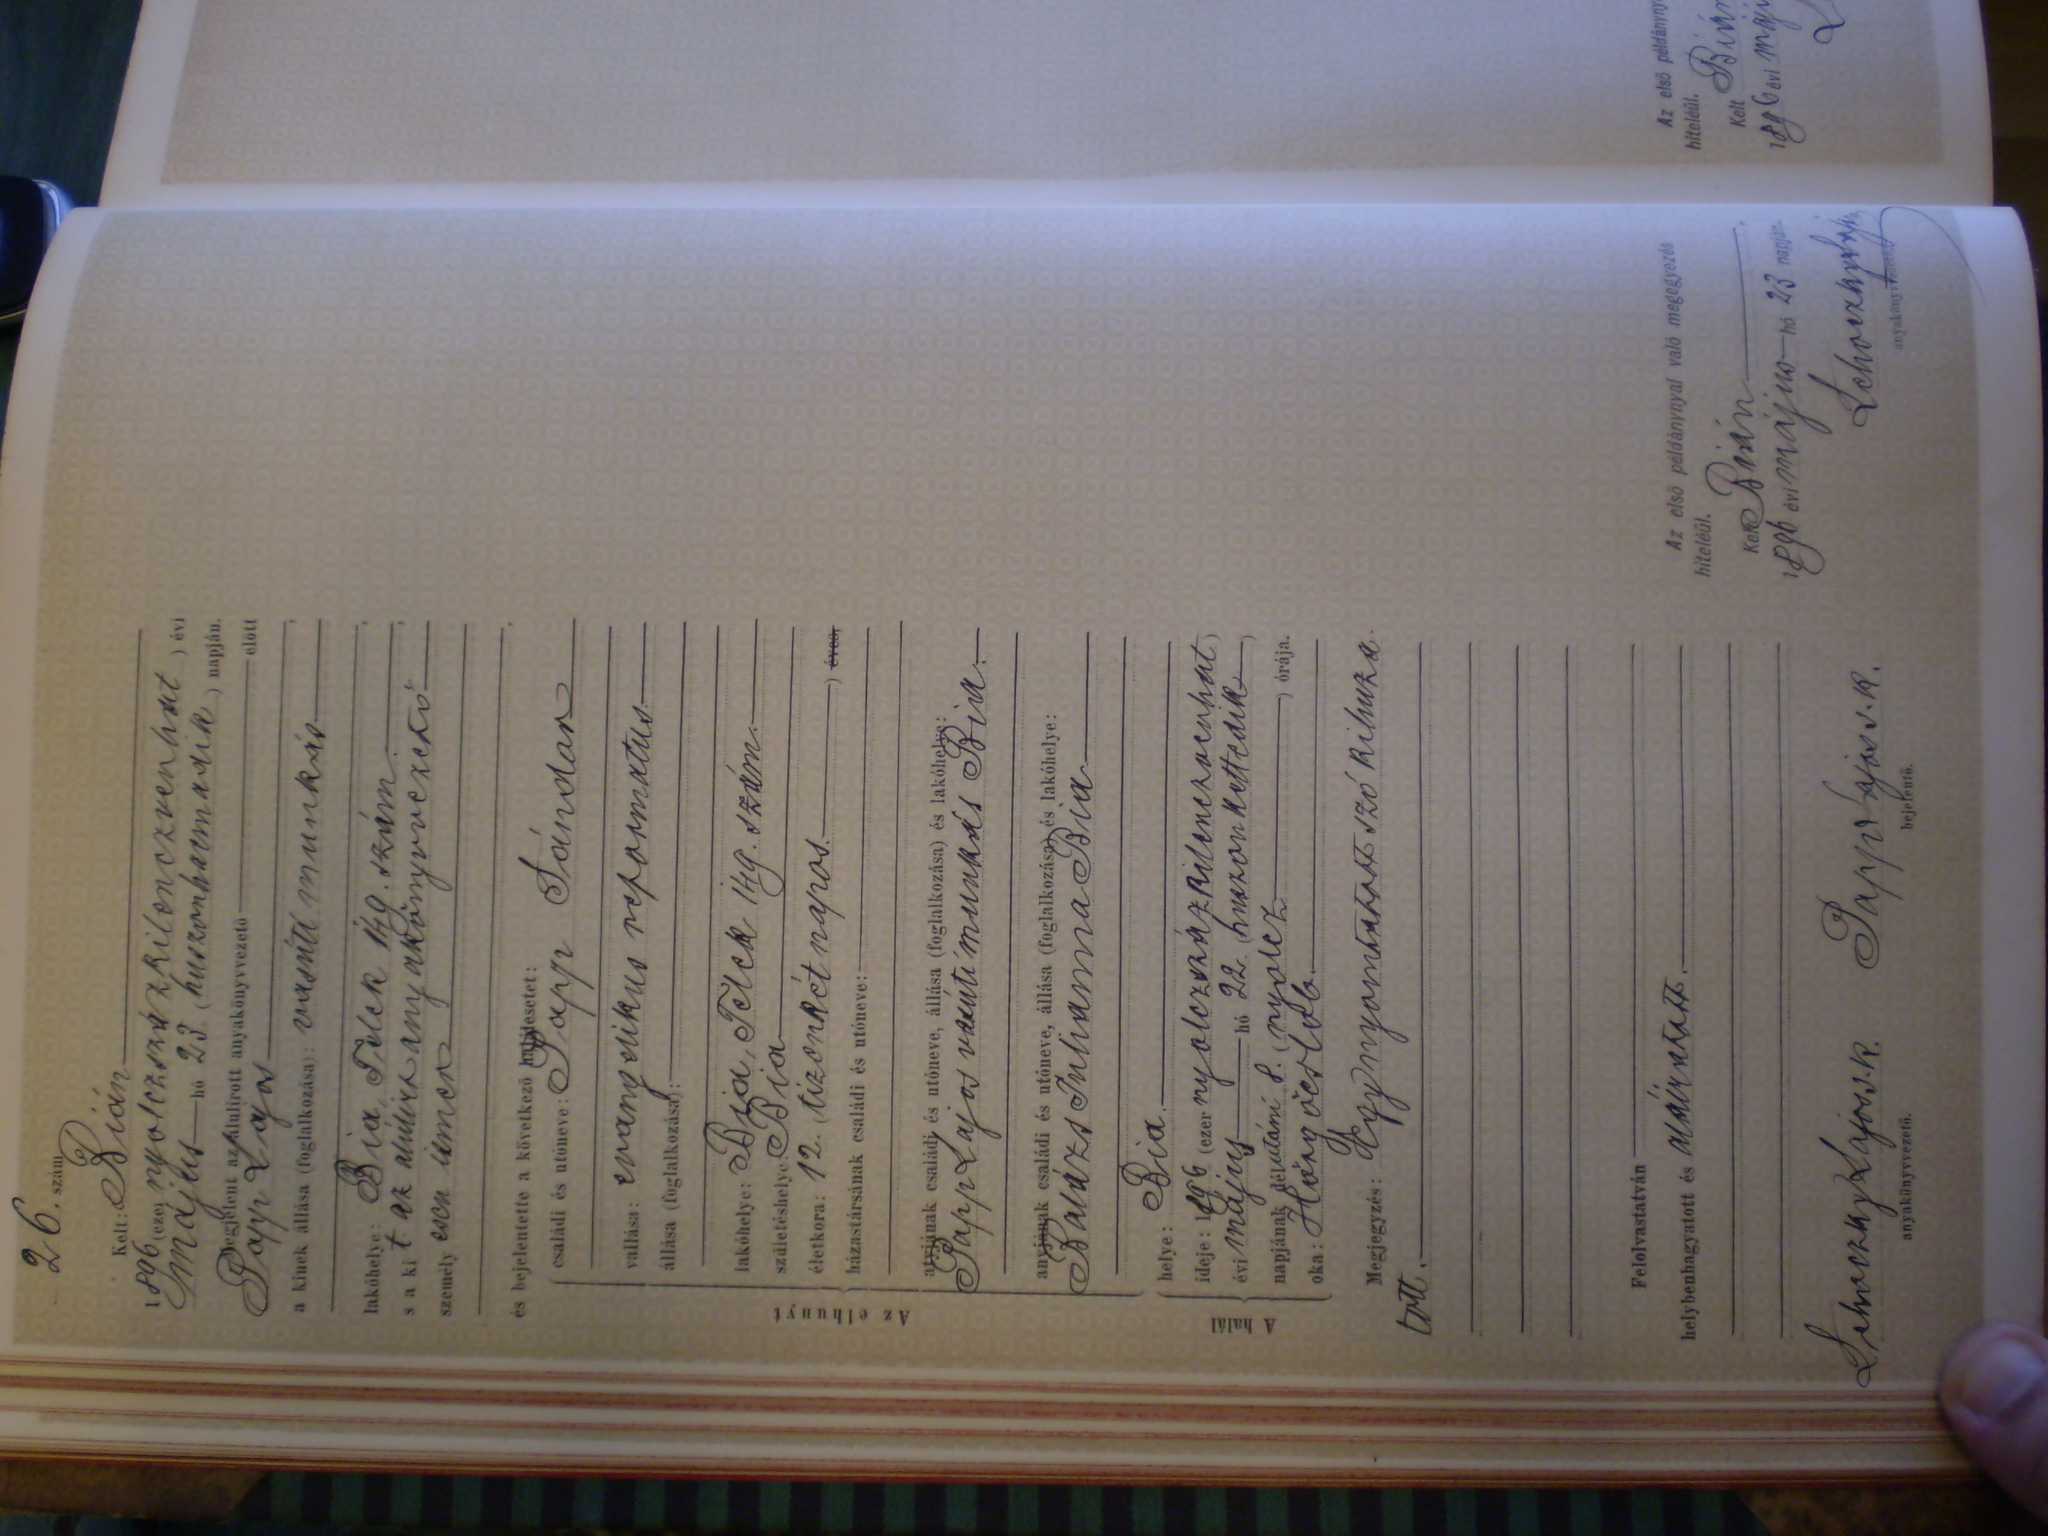 26. szám
Kelt: Bián
1896 (ezer nyolczszázkilenczvenhat) évi
május hó 23. (huszonharmadik) napján.
Megjelent az alulirott anyakönyvvezető előtt
Papp Lajos
a kinek állása (foglalkozása): vasúti munkás,
lakóhelye: Bia, Telek 149. szám,
s a ki t az alúlirt anyakönyvvezető,
személy esen ismer
és bejelentette a következő halálesetet:
Az elhunyt
családi és utóneve: Papp Sándor
vallása: evangelikus reformatus
állása (foglalkozása):
lakóhelye: Bia, Telek 149. szám.
születéshelye: Bia
életkora: 12. (tizenkét napos. ) éves,
házastársának családi és utóneve:
atyjának családi és utóneve, állása (foglalkozása) és lakóhelye:
Papp Lajos vasúti munkás Bia.
anyjának családi és utóneve, állása (foglalkozása) és lakóhelye:
Balázs Juliánna Bia
A halál
helye: Bia.
ideje: 1896 (ezer nyolczszázkilenczvenhat)
évi május hó 22. (huszonkettedik )
napjának délutáni 8. (nyolcz ) órája.
oka: Hörg öcslob.
Megjegyzés: Egy nyomtatott szó kihuza-
tott.
Felolvastatván
helybenhagyatott és aláiratott.
Lehoczky Lajos s. k.
anyakönyvvezető.
Papp Lajos s. k.
bejelentő.
Az első példánynyal való megegyezés
hiteleül.
Kelt Bián,
1896 évi május hó 23 napján.
Lehoczky Lajos
anyakönyvvezető
Az első példányny
hiteleül.
Kelt Bián
1896 évi máju